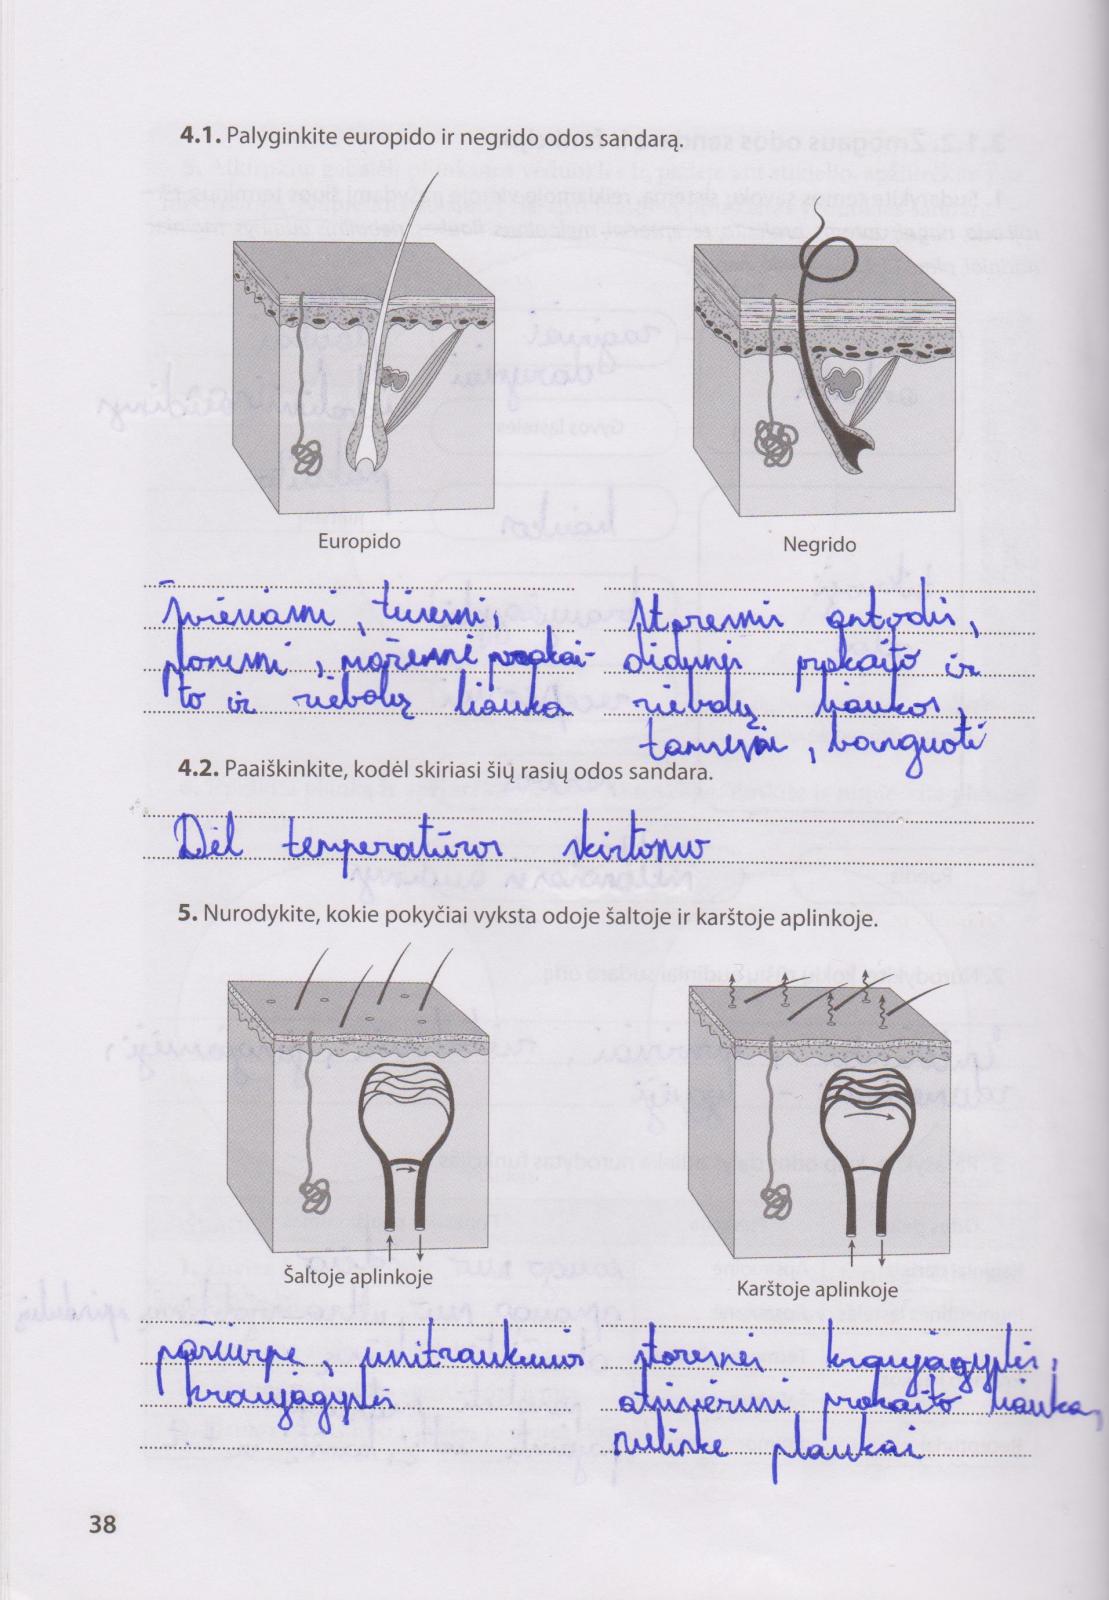 4.1. Palyginkite europido ir negrido odos sandarą.
Europido
Negrido
šviesiasni, tiesesni,
plonesni, mažesnė prakai-
to ir riebalų liauka
Storesnis antodis,
didesnės prakaito ir
riebalų liaukos,
tamsesni, banguoti
4.2. Paaiškinkite, kodėl skiriasi šių rasių odos sandara.
Dėl temperatūros skirtumo
5. Nurodykite, kokie pokyčiai vyksta odoje šaltoje ir karštoje aplinkoje.
Šaltoje aplinkoje
Karštoje aplinkoje
pašiurpę, susitraukusios
kraujagyslės
storesnės kraujagyslės,
atsivėrusi prakaito liauka,
nulinkę plaukai
38